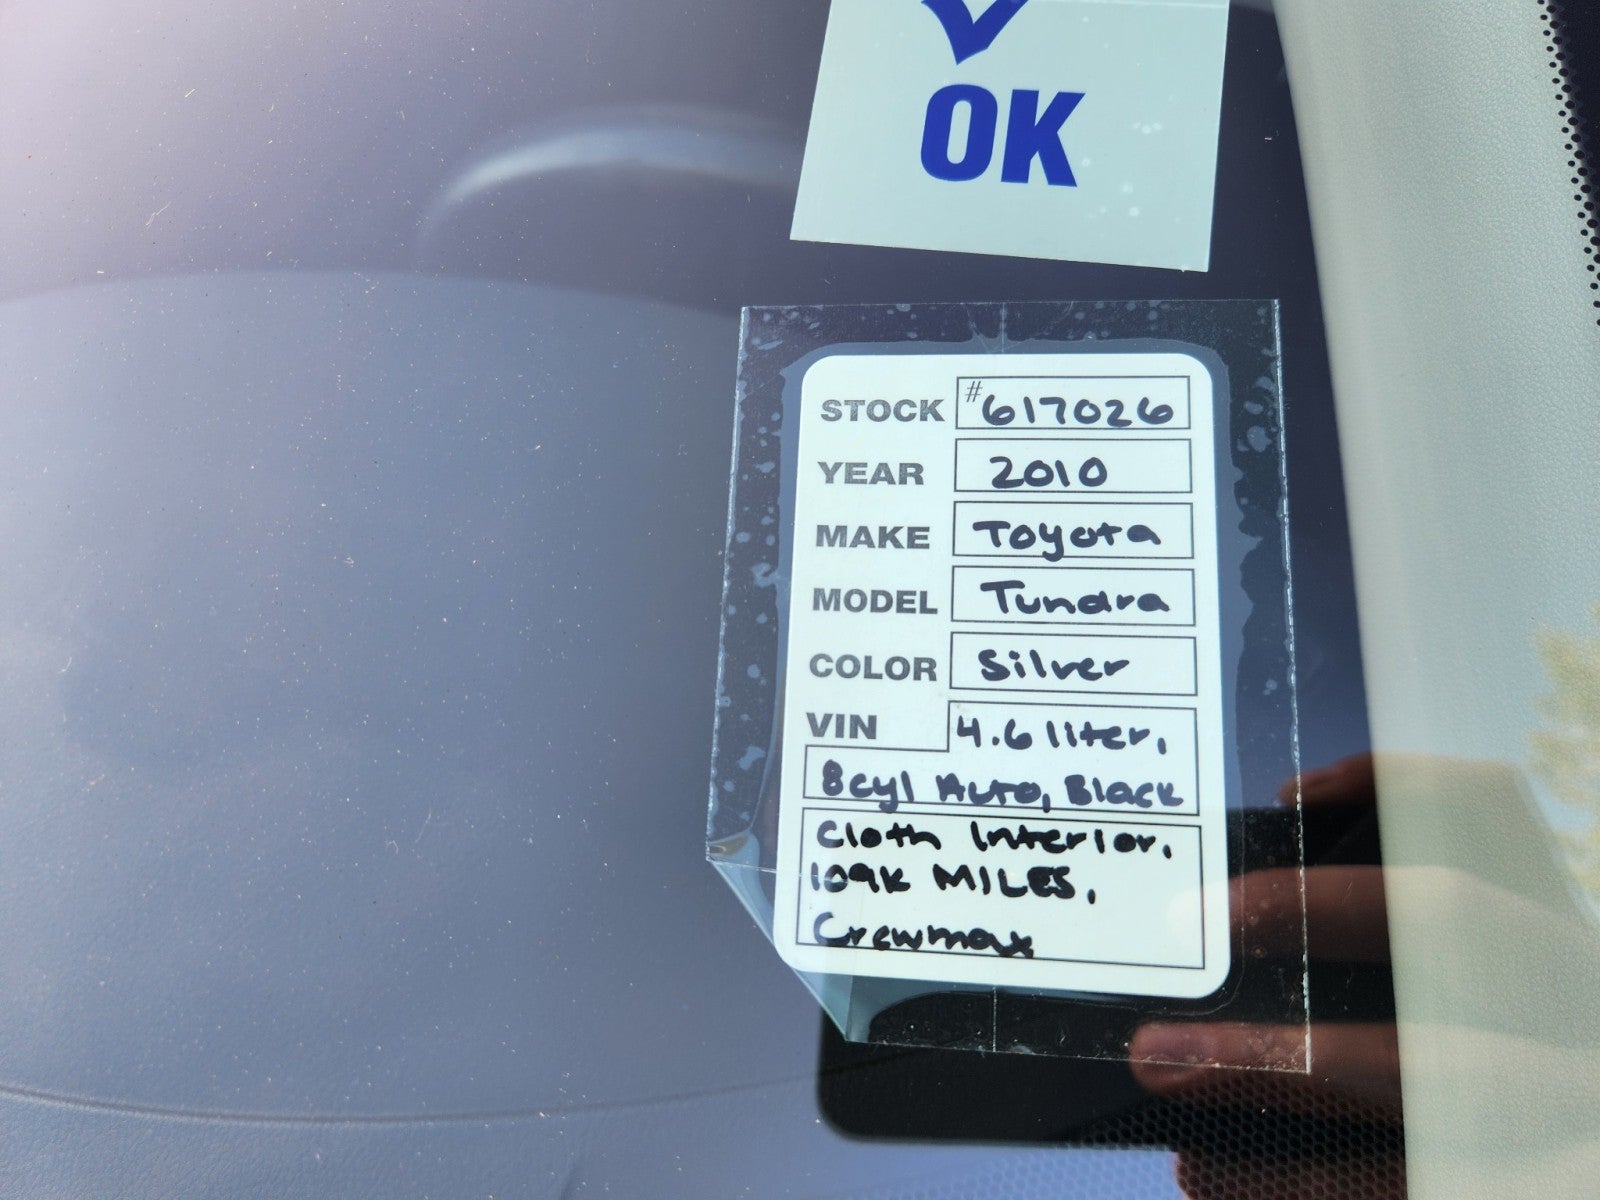 OK
STOCK #617026
YEAR 2010
MAKE Toyota
MODEL Tundra
COLOR Silver
VIN 4.6 liter,
8cyl Auto, Black
Cloth Interior,
109K MILES,
Crewmax